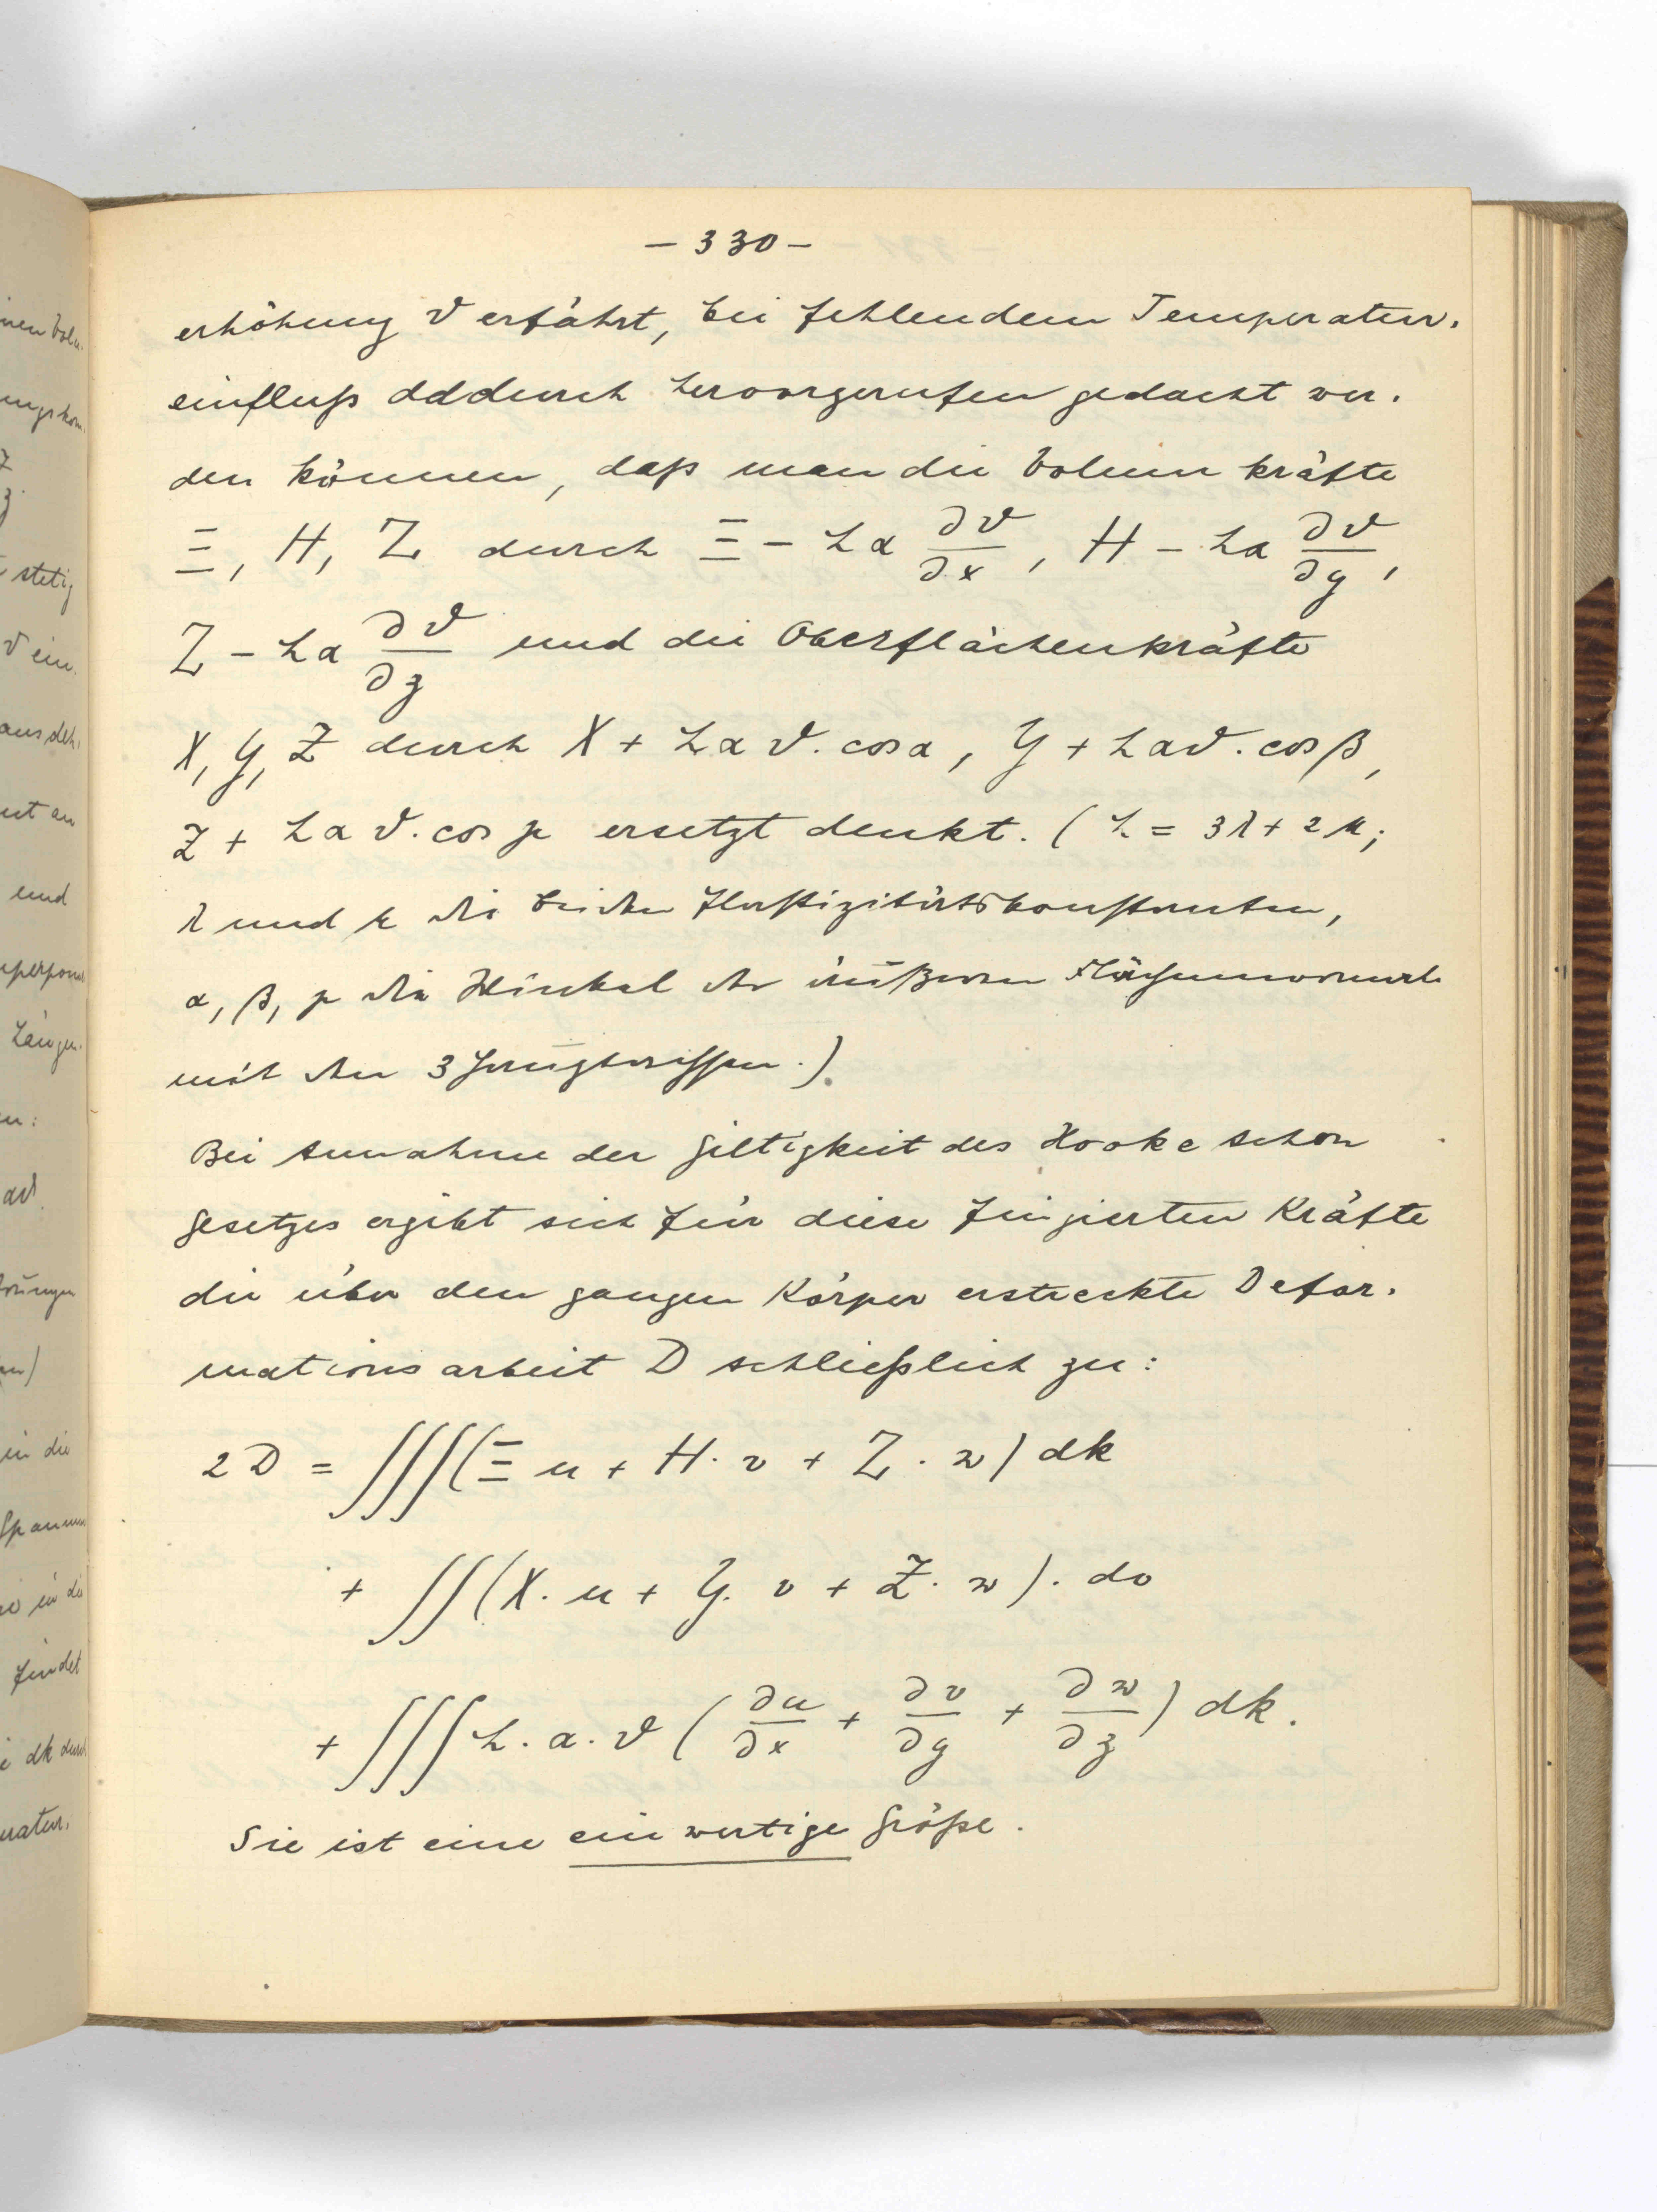 - 330 -
erhöhung ϑ erfährt, bei fehlendem Temperatur-
einfluß dadurch hervorgerufen gedacht wer-
den können, daß man die Volumkräfte
Ξ, H, Z durch Ξ - hα ∂ϑ/∂x, H - hα ∂ϑ/∂y,
Z - hα ∂ϑ/∂z und die Oberflächenkräfte
X, Y, Z durch X + hαϑ. cos α, Y + hαϑ. cos β,
Z + hαϑ. cos γ ersetzt denkt. (h = 3λ + 2μ;
λ und μ die beiden Elastizitätskonstanten,
α, β, γ die Winkel der äußeren Flächennormale
mit den 3 Hauptrissen.)
Bei Annahme der Giltigkeit des Hooke schen
Gesetzes ergibt sich für diese fingierten Kräfte
die über den ganzen Körper erstreckte Defor-
mationsarbeit D schließlich zu:
2D = ∫∫∫(Ξ u + H. v + Z. w) dk
+ ∫∫(X. u + Y. v + Z. w). do
+ ∫∫∫ h. α. ϑ (∂u/∂x + ∂v/∂y + ∂w/∂z) dk.
Sie ist eine einwertige Größe.